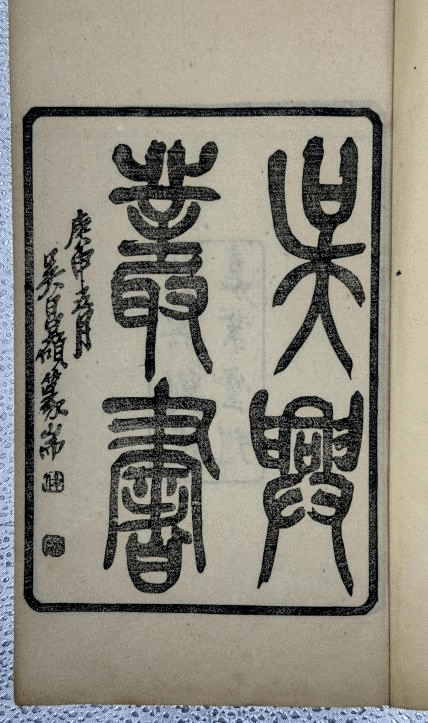 吳興
叢書
庚申五月
吳昌碩篆耑